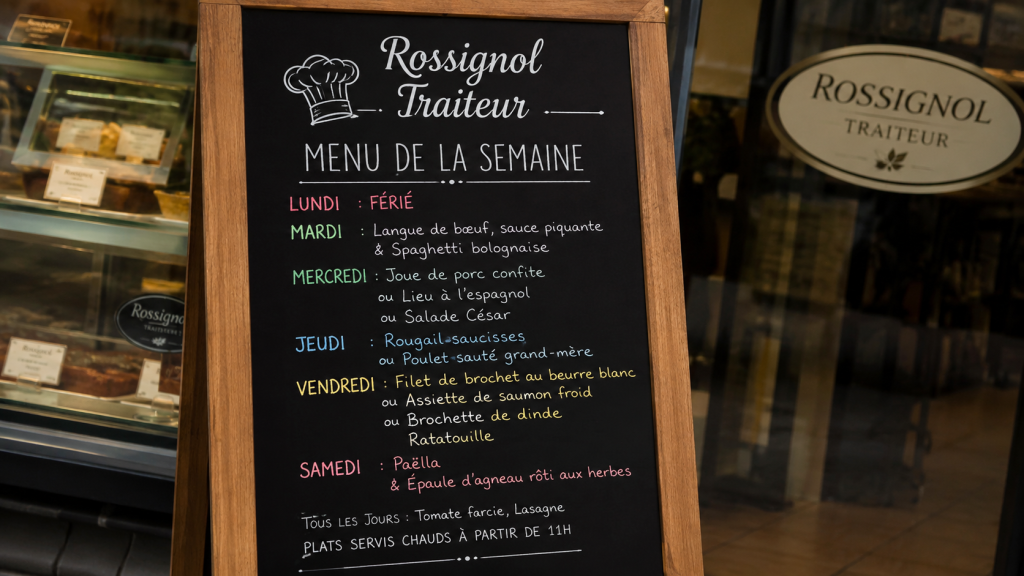 Rossignol
Traiteur
MENU DE LA SEMAINE
LUNDI : FÉRIÉ
MARDI : Langue de bœuf, sauce piquante
& Spaghetti bolognaise
MERCREDI : Joue de porc confite
ou Lieu à l'espagnol
ou Salade César
JEUDI : Rougail-saucisses
ou Poulet sauté grand-mère
VENDREDI : Filet de brochet au beurre blanc
ou Assiette de saumon froid
ou Brochette de dinde
Ratatouille
SAMEDI : Paëlla
& Épaule d'agneau rôti aux herbes
TOUS LES JOURS : Tomate farcie, Lasagne
PLATS SERVIS CHAUDS À PARTIR DE 11H
ROSSIGNOL
TRAITEUR
Rossigno